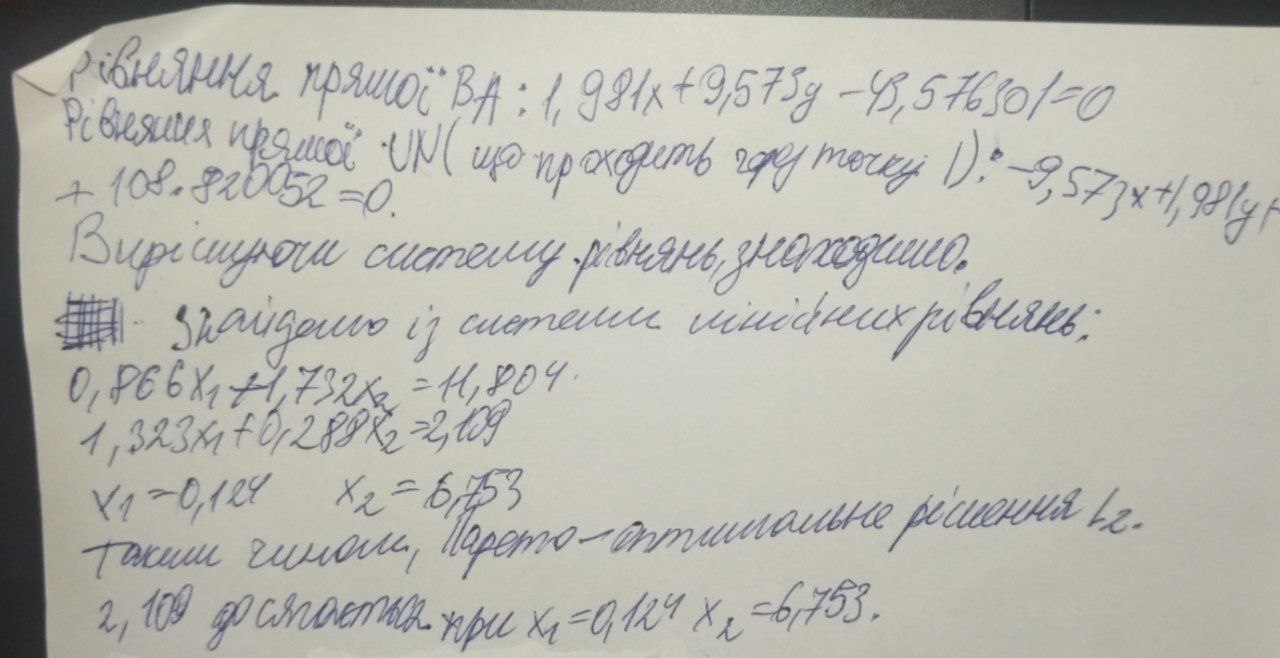 Рівняння прямої ВА: 1,981x+9,573y-43,576301=0
Рівняння прямої UN (що проходить через точку 1): -9,573x+1,981y+
+108.820052=0.
Вирішуючи систему рівнянь, знаходимо.
Знайдемо із системи лінійних рівнянь:
0,866x₁+1,732x₂=11,804.
1,323x₁+0,288x₂=2,109
x₁=0,124 x₂=6,753
Таким чином, Парето-оптимальне рішення L₂.
2,109 досягається при x₁=0,124 x₂=6,753.